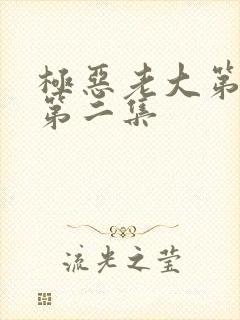 極惡老大第
第二集
流光之莹